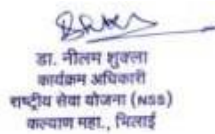 डा. नीलम शुक्ला
कार्यक्रम अधिकारी
राष्ट्रीय सेवा योजना (NSS)
कल्याण महा., भिलाई